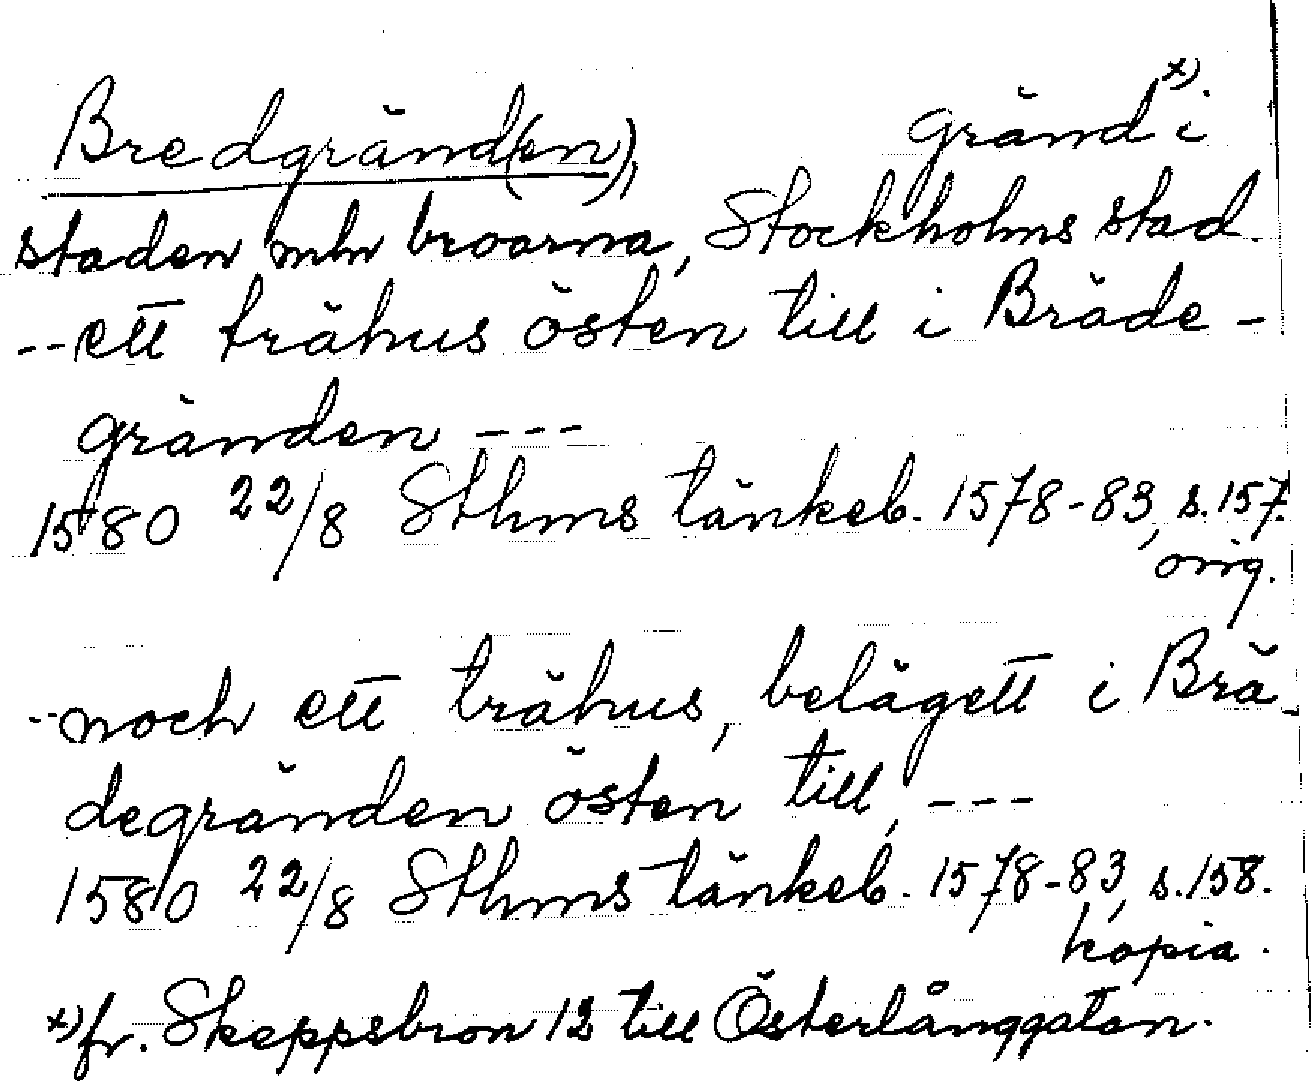 Bredgränd(en), gränd x) i
staden mln broarna, Stockholms stad.
-- ett trähus östen till i Bräde-
gränden ---
1580 22/8 Sthms tänkeb. 1578-83, s. 157.
orig.
-- noch ett trähus, belägett i Brä-
degränden östen till, ---
1580 22/8 Sthms tänkeb. 1578-83, s. 158.
kopia.
x) fr. Skeppsbron 12 till Österlånggatan.